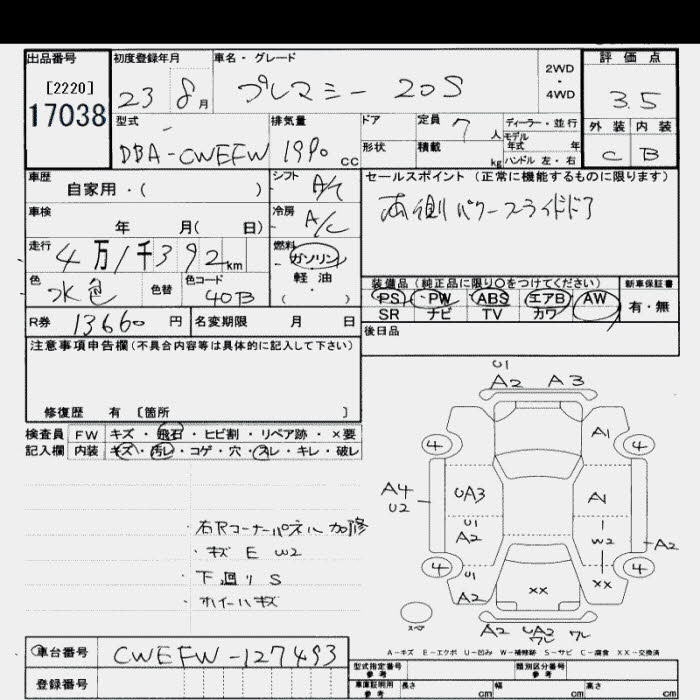 出品番号
[2220]
17038
初度登録年月
23 8月
車名・グレード
プレマシー 20S
2WD
・
4WD
評価点
3.5
外装 内装
C B
型式
DBA-CWEFW
排気量
1990 cc
ドア
形状
定員 7 人
積載 kg
ディーラー・並行
モデル年式 年
ハンドル 左・右
車歴
自家用・( )
シフト A/C
セールスポイント (正常に機能するものに限ります)
両側パワースライドドア
車検
年 月( 日)
冷房 A/C
走行
4万1千392km
燃料
ガソリン
軽油
( ・ )
色
水色
色替
色コード
40B
装備品 (純正品に限り〇をつけてください)
PS ・ PW ABS エアB AW
SR ナビ TV カワ
新車保証書
有・無
R券 13660 円
名変期限 月 日
後日品
注意事項申告欄 (不具合内容等は具体的に記入して下さい)
修復歴 有 [箇所 ]
検査員
記入欄
FW キズ・飛石・ヒビ割・リペア跡・×要
内装 キズ・汚レ・コゲ・穴・スレ・キレ・破レ
・右Rコーナーパネル加修
・キズ E W2
・下廻り S
・ホイールキズ
U1
A2 A3
4 A1 4
A4
U2
UA3 A1
U1
A2 W2 A2
4 4
U1
A2 XX XX
スペア
A2 UA3 ワレ ワレ
A-キズ E-エクボ U-凹み W-補修跡 S-サビ C-腐食 XX-交換済
車台番号 CWEFW-127493
登録番号
型式指定番号
参考
類別区分番号
参考
車庫証明用
参考
長さ cm 幅 cm 高さ cm